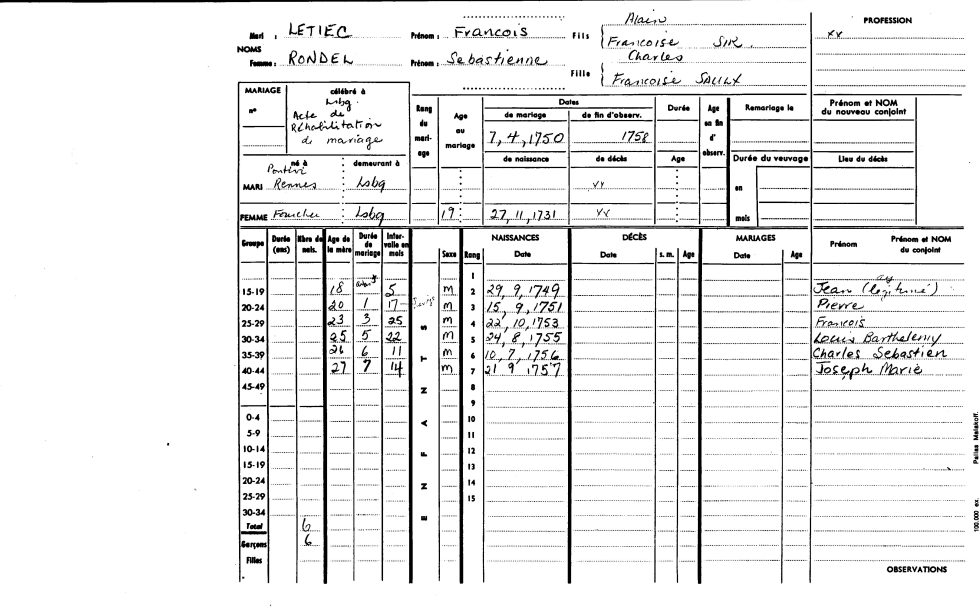 Alain
Mari : LETIEC Prénom : Francois Fils Francoise SIR. PROFESSION
NOMS Charles
Femme : RONDEL Prénom : Sebastienne Fille Francoise SAULX
MARIAGE célébré à
n° Lsbg.
Acte de
Réhabilitation
de mariage
Rang du mariage Age au mariage Dates Durée Age en fin d'observ. Remariage le Prénom et NOM du nouveau conjoint
de mariage de fin d'observ.
7, 4, 1750 1758
né à demeurant à de naissance de décès Age Durée du veuvage Lieu du décès
Pontivi
MARI Rennes Lsbg vv en
FEMME Lsbg 19 27, 11, 1731 vv mois
Groupe Durée (ans) Nbre de nais. Age de la mère Durée de mariage Intervalle en mois ENFANTS Sexe Rang NAISSANCES Date DÉCÈS Date s. m. Age MARIAGES Date Age Prénom Prénom et NOM du conjoint
1
15-19 18 5 m 2 29, 9, 1749 Jean (légitimé)
20-24 20 1 17 m 3 15, 9, 1751 Pierre
25-29 23 3 25 m 4 22, 10, 1753 Francois
30-34 25 5 22 m 5 24, 8, 1755 Louis Barthelemy
35-39 26 6 11 m 6 10, 7, 1756 Charles Sebastien
40-44 27 7 14 m 7 21 9 1757 Joseph Marie
45-49 8
9
0-4 10
5-9 11
10-14 12
15-19 13
20-24 14
25-29 15
30-34
Total 6
Garçons 6
Filles
OBSERVATIONS
100.000 ex. Paillas Malakoff.